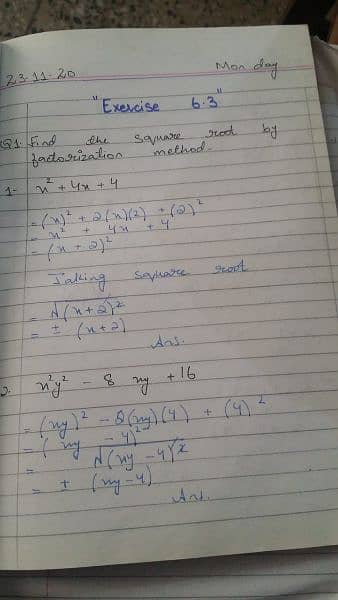 23.11.20 Monday
"Exercise 6.3"
Q1. Find the square root by
factorization method.
1- x² + 4x + 4
= (x)² + 2(x)(2) + (2)²
= x² + 4x + 4
= (x + 2)²
Taking square root
= √(x+2)²
= ± (x+2)
Ans.
2. x²y² - 8 xy + 16
= (xy)² - 2(xy)(4) + (4)²
= (xy - 4)²
= √(xy - 4)²
= ± (xy-4)
Ans.